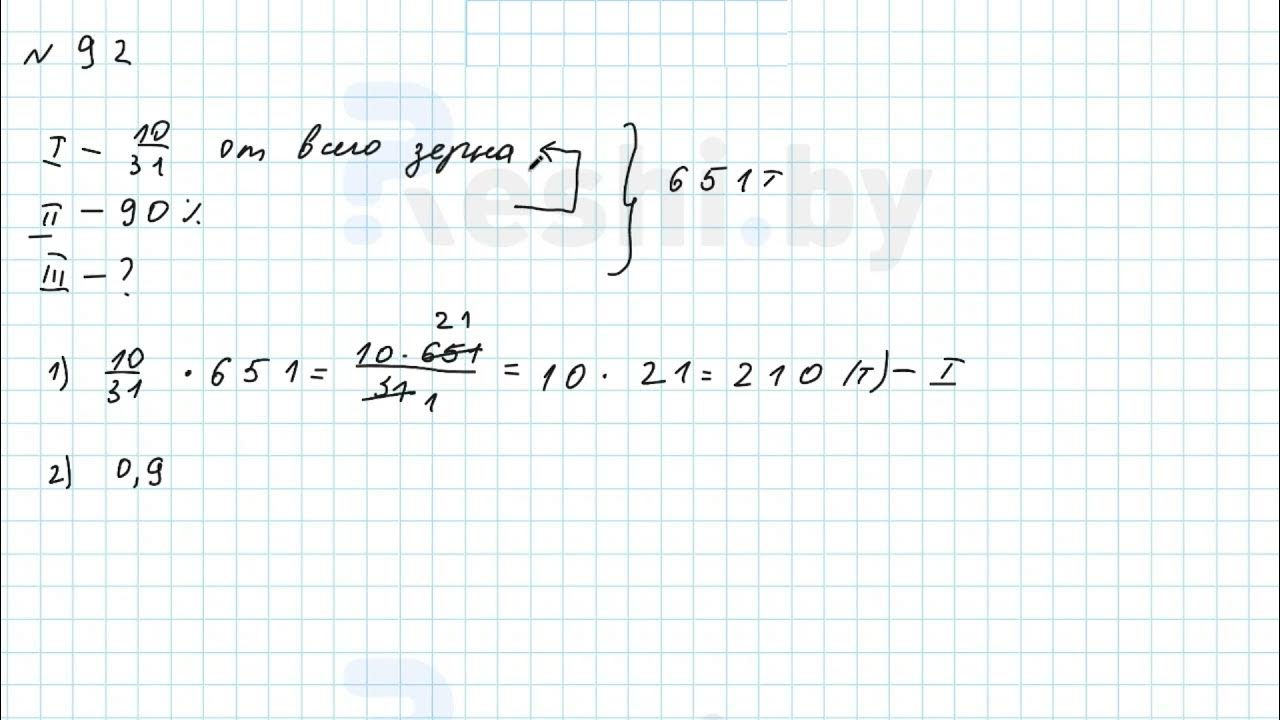 № 92
I – 10/31 от всего зерна } 651 т
II – 90 %
III – ?
1) 10/31 · 651 = 10 · 651/31 = 10 · 21 = 210 (т) – I
21
1
2) 0,9
?Reshi.by